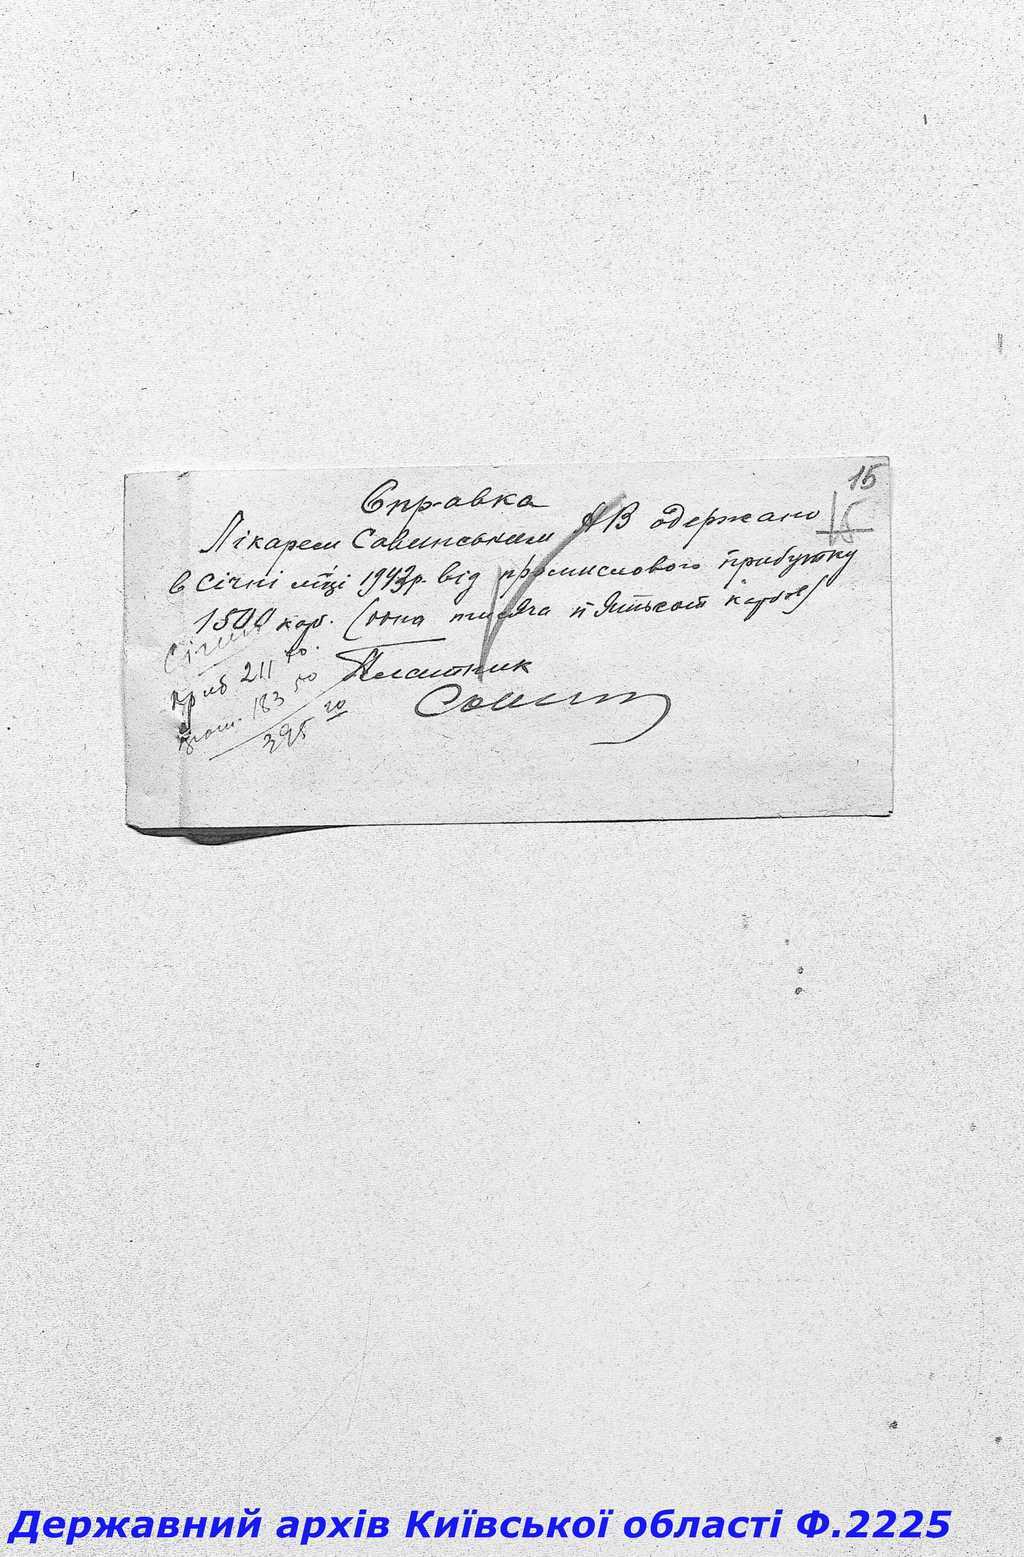 15
15
Справка
Лікарем Савинським АВ одержано
в січні м-ці 1943р. від промислового прибутку
1500 карб. (одна тисяча п'ятьсот карбов)
Січень
приб 211 70.
183 50
395 20
Платник
Державний архів Київської області Ф.2225